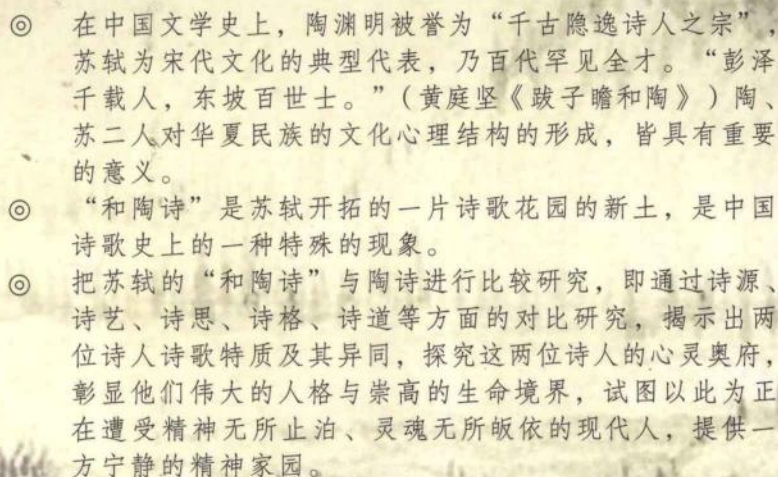 ◎ 在中国文学史上，陶渊明被誉为“千古隐逸诗人之宗”，
苏轼为宋代文化的典型代表，乃百代罕见全才。“彭泽
千载人，东坡百世士。”（黄庭坚《跋子瞻和陶》）陶、
苏二人对华夏民族的文化心理结构的形成，皆具有重要
的意义。
◎ “和陶诗”是苏轼开拓的一片诗歌花园的新土，是中国
诗歌史上的一种特殊的现象。
◎ 把苏轼的“和陶诗”与陶诗进行比较研究，即通过诗源、
诗艺、诗思、诗格、诗道等方面的对比研究，揭示出两
位诗人诗歌特质及其异同，探究这两位诗人的心灵奥府，
彰显他们伟大的人格与崇高的生命境界，试图以此为正
在遭受精神无所止泊、灵魂无所皈依的现代人，提供一
方宁静的精神家园。